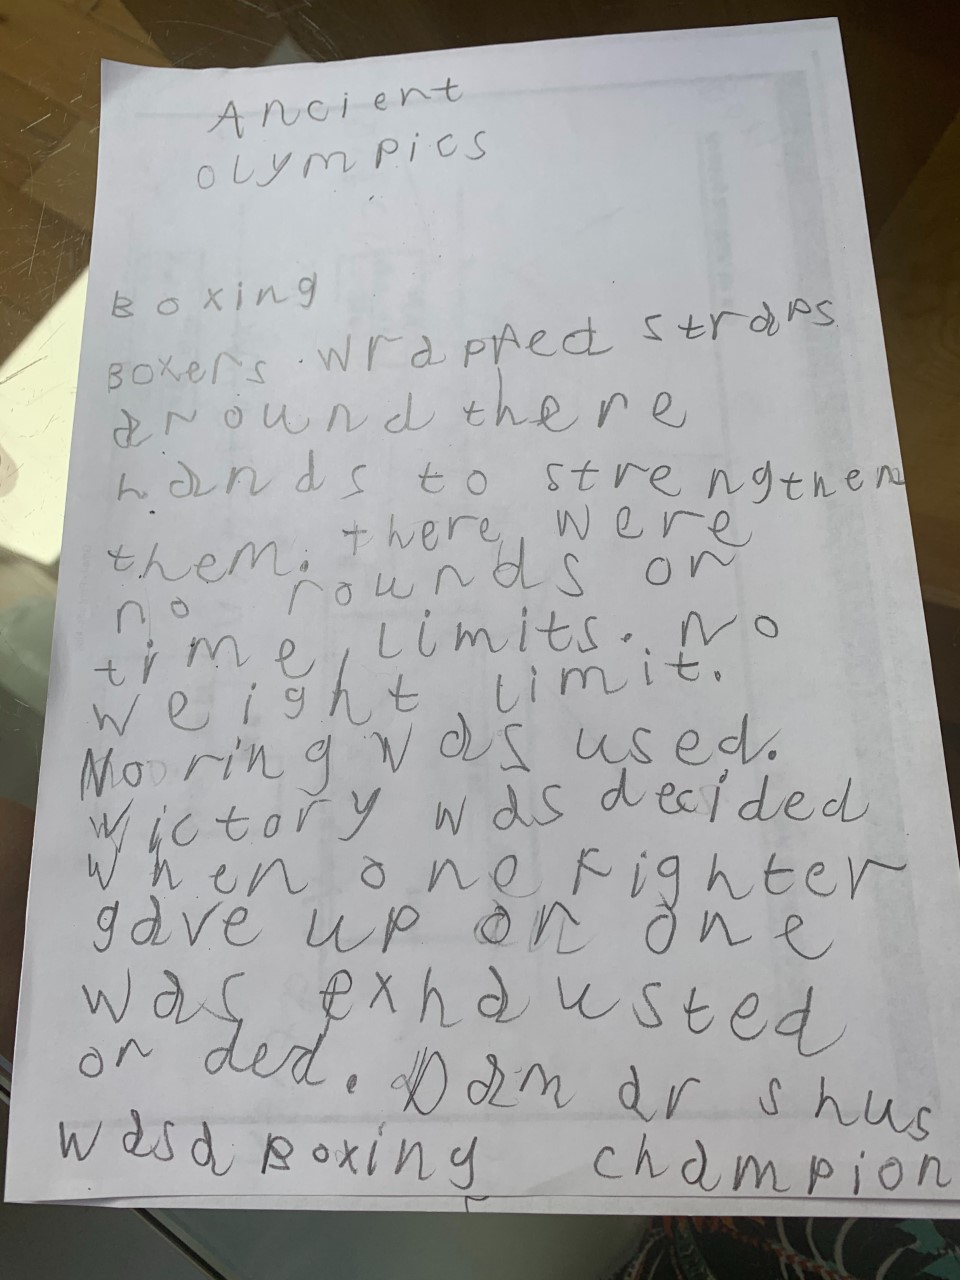 Ancient
Olympics
Boxing
Boxers wrapped straps
around there
hands to strengthen
them. there were
no rounds or
time limits. No
weight limit.
No ring was used.
Wictory was decided
when one fighter
gave up or one
was exhausted
or ded. Damarshus
was a Boxing champion